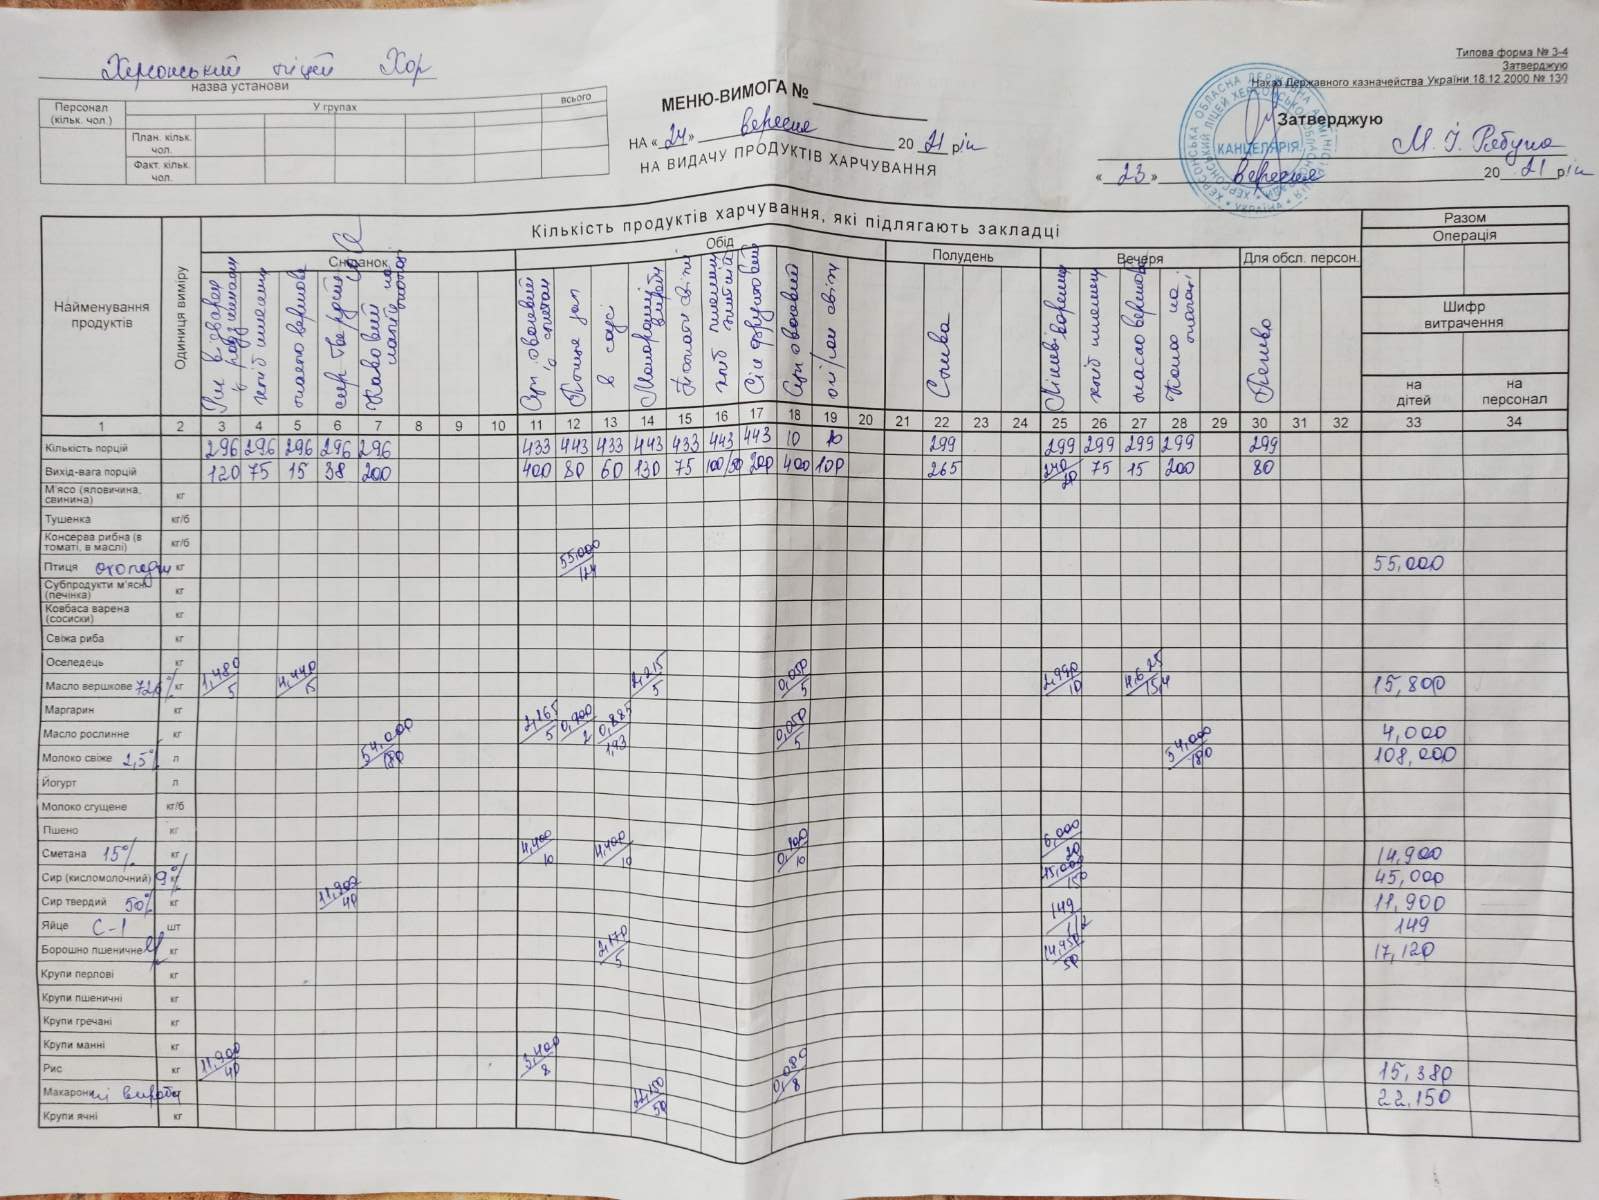 Типова форма № 3-4
Затверджую
Наказ Державного казначейства України 18.12.2000 № 130
Херсонський ліцей Хор
назва установи
Персонал (кільк. чол.) У групах всього
План. кільк. чол.
Факт. кільк. чол.
МЕНЮ-ВИМОГА №
НА «24» вересня 2021 рік
НА ВИДАЧУ ПРОДУКТІВ ХАРЧУВАННЯ
Затверджую
КАНЦЕЛЯРІЯ
М. І. Рябуха
«23» вересня 2021 рік
Найменування продуктів Одиниця виміру Кількість продуктів харчування, які підлягають закладці Разом
Операція
Сніданок Обід Полудень Вечеря Для обсл. персон.
Шифр витрачення
на дітей на персонал
хліб пшеничн масло вершкове сир твердий
Птиця зап в соусі хліб пшеничн житній Сік фруктовий
Слива
хліб пшеничн масло вершкове Печиво
1 2 3 4 5 6 7 8 9 10 11 12 13 14 15 16 17 18 19 20 21 22 23 24 25 26 27 28 29 30 31 32 33 34
Кількість порцій 296 296 296 296 296 433 443 433 443 433 443 443 10 10 299 299 299 299 299 299
Вихід-вага порцій 120 75 15 38 200 400 80 60 130 75 100/50 200 400 100 265 240/20 75 15 200 80
М'ясо (яловичина, свинина) кг
Тушенка кг/б
Консерва рибна (в томаті, в маслі) кг/б
Птиця охолодж кг 55,000/124 55,000
Субпродукти м'ясн (печінка) кг
Ковбаса варена (сосиски) кг
Свіжа риба кг
Оселедець кг
Масло вершкове 72,6% кг 1,480/5 4,440/15 2,215/5 0,050/5 2,990/10 4,625/15,4 15,800
Маргарин кг
Масло рослинне кг 2,165/5 0,900/2 0,885/1,93 0,050/5 4,000
Молоко свіже 2,5% л 54,000/180 54,000/180 108,000
Йогурт л
Молоко сгущене кг/б
Пшено кг
Сметана 15% кг 4,400/10 4,400/10 0,100/10 6,000/20 14,900
Сир (кисломолочний) 9% кг 45,000/150 45,000
Сир твердий 50% кг 11,900/40 11,900
Яйце С-1 шт 149/1/2 149
Борошно пшеничне кг 2,170/5 14,950/50 17,120
Крупи перлові кг
Крупи пшеничні кг
Крупи гречані кг
Крупи манні кг
Рис кг 11,900/40 3,400/8 0,080/8 15,380
Макаронні вироби 22,150/50 22,150
Крупи ячні кг